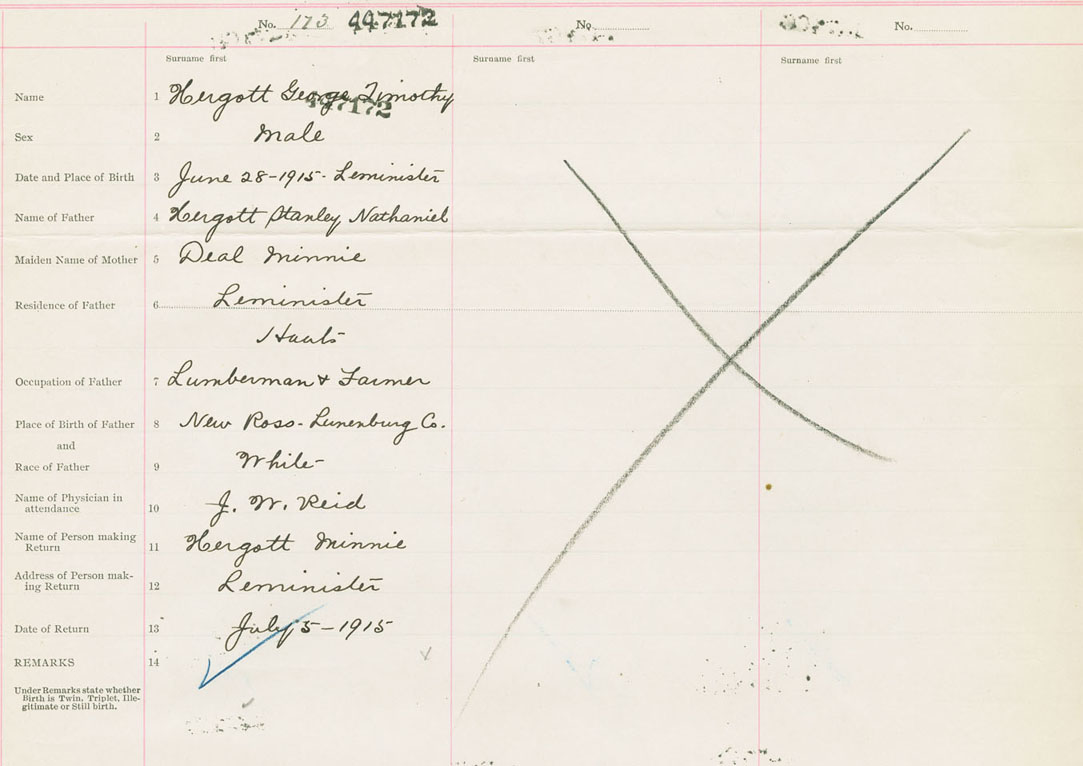 No. 173 447172 No. No.
Surname first Surname first Surname first
Name 1 Hergott George Timothy
447172
Sex 2 Male
Date and Place of Birth 3 June 28-1915- Leminister
Name of Father 4 Hergott Stanley Nathaniel
Maiden Name of Mother 5 Deal Minnie
Residence of Father 6 Leminister
Hants
Occupation of Father 7 Lumberman & Farmer
Place of Birth of Father 8 New Ross- Lunenburg Co.
and
Race of Father 9 White
Name of Physician in
attendance 10 J. W. Reid
Name of Person making
Return 11 Hergott Minnie
Address of Person mak-
ing Return 12 Leminister
Date of Return 13 July 5-1915
REMARKS 14
Under Remarks state whether
Birth is Twin, Triplet, Ille-
gitimate or Still birth.